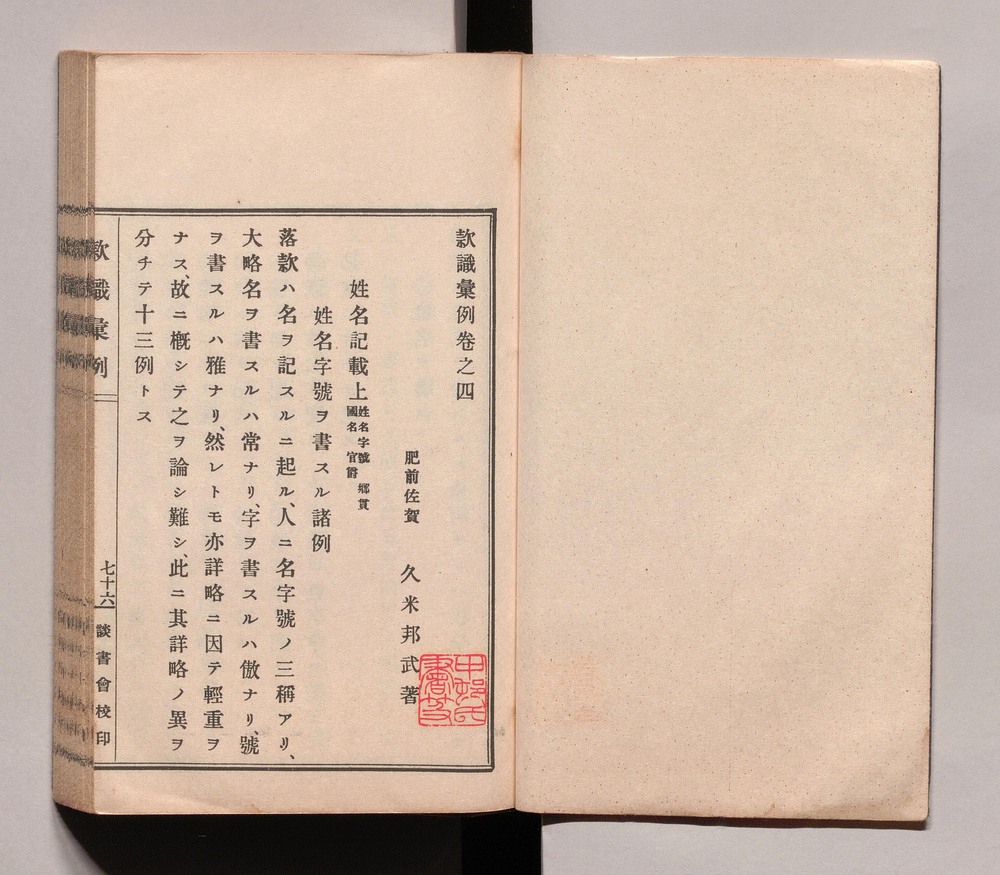 款識彙例卷之四
肥前佐賀 久米邦武著
姓名記載上 姓名字號 鄕貫
國名 官爵
姓名字號ヲ書スル諸例
落款ハ名ヲ記スルニ起ル、人ニ名字號ノ三稱アリ、
大略名ヲ書スルハ常ナリ、字ヲ書スルハ倣ナリ、號
ヲ書スルハ雅ナリ、然レトモ亦詳略ニ因テ輕重ヲ
ナス、故ニ槪シテ之ヲ論シ難シ、此ニ其詳略ノ異ヲ
分チテ十三例トス
款識彙例
七十六
談書會校印